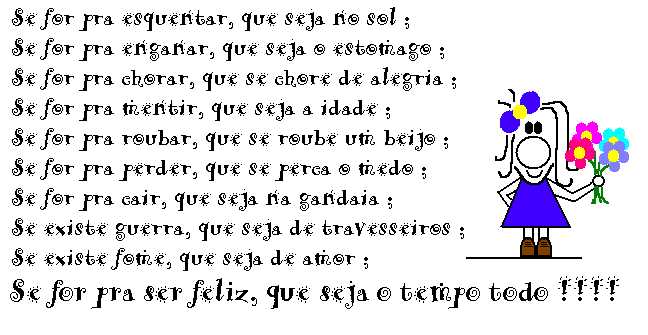 Se for pra esquentar, que seja no sol ;
Se for pra enganar, que seja o estomago ;
Se for pra chorar, que se chore de alegria ;
Se for pra mentir, que seja a idade ;
Se for pra roubar, que se roube um beijo ;
Se for pra perder, que se perca o medo ;
Se for pra cair, que seja na gandaia ;
Se existe guerra, que seja de travesseiros ;
Se existe fome, que seja de amor ;
Se for pra ser feliz, que seja o tempo todo !!!!